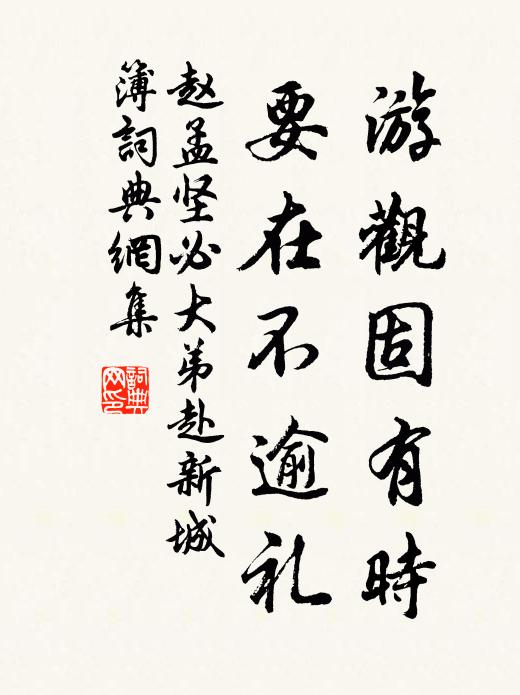 游觀固有時
要在不逾礼
赵孟坚必大弟赴新城
簿詞典網集
詞典
网印